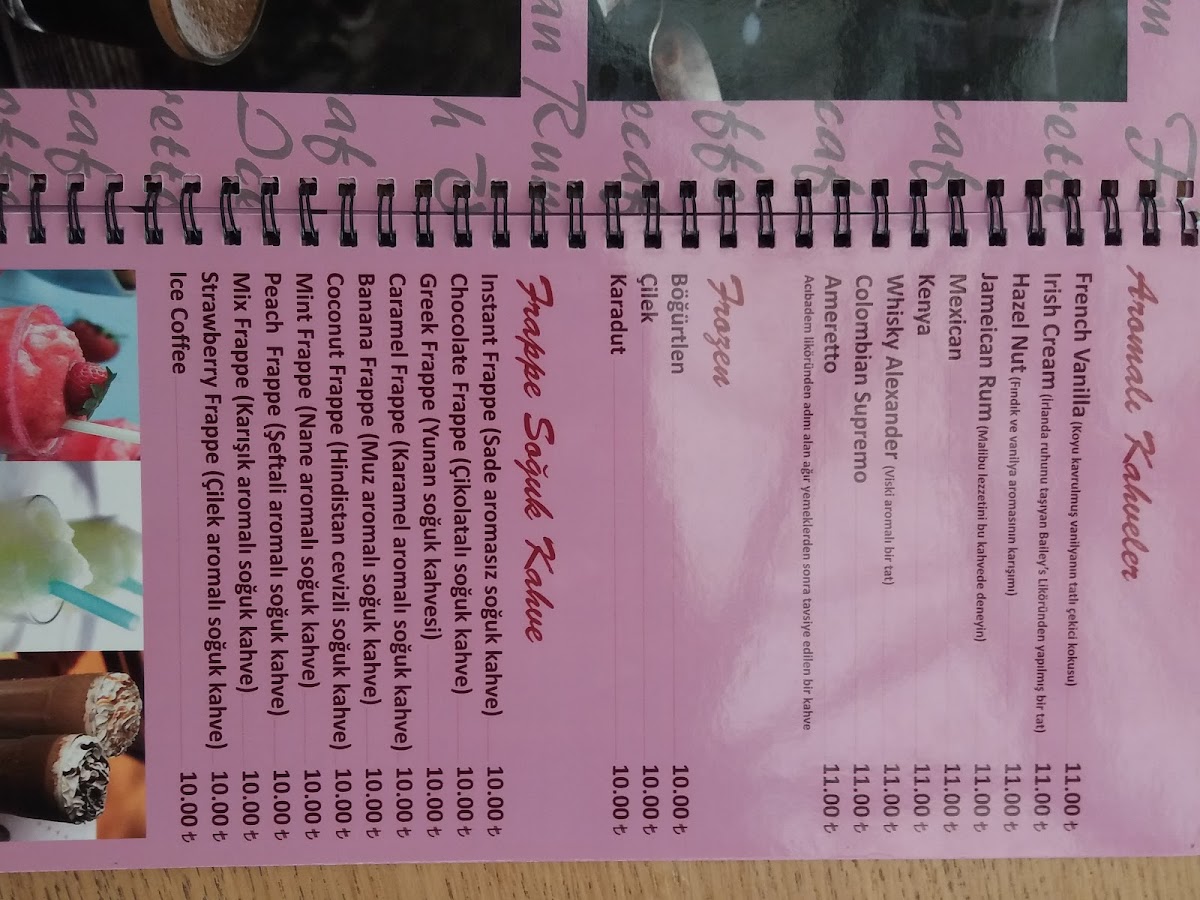 Aromalı Kahveler
French Vanilla (Koyu kavrulmuş vanilyanın tatlı çekici kokusu) 11.00 ₺
Irish Cream (İrlanda ruhunu taşıyan Bailey's Liköründen yapılmış bir tat) 11.00 ₺
Hazel Nut (Fındık ve vanilya aromasının karışımı) 11.00 ₺
Jameican Rum (Malibu lezzetini bu kahvede deneyin) 11.00 ₺
Mexican 11.00 ₺
Kenya 11.00 ₺
Whisky Alexander (Viski aromalı bir tat) 11.00 ₺
Colombian Supremo 11.00 ₺
Ameretto 11.00 ₺
Acıbadem liköründen adını alan ağır yemeklerden sonra tavsiye edilen bir kahve
Frozen
Böğürtlen 10.00 ₺
Çilek 10.00 ₺
Karadut 10.00 ₺
Frappe Soğuk Kahve
Instant Frappe (Sade aromasız soğuk kahve) 10.00 ₺
Chocolate Frappe (Çikolatalı soğuk kahve) 10.00 ₺
Greek Frappe (Yunan soğuk kahvesi) 10.00 ₺
Caramel Frappe (Karamel aromalı soğuk kahve) 10.00 ₺
Banana Frappe (Muz aromalı soğuk kahve) 10.00 ₺
Coconut Frappe (Hindistan cevizli soğuk kahve) 10.00 ₺
Mint Frappe (Nane aromalı soğuk kahve) 10.00 ₺
Peach Frappe (Şeftali aromalı soğuk kahve) 10.00 ₺
Mix Frappe (Karışık aromalı soğuk kahve) 10.00 ₺
Strawberry Frappe (Çilek aromalı soğuk kahve) 10.00 ₺
Ice Coffee 10.00 ₺